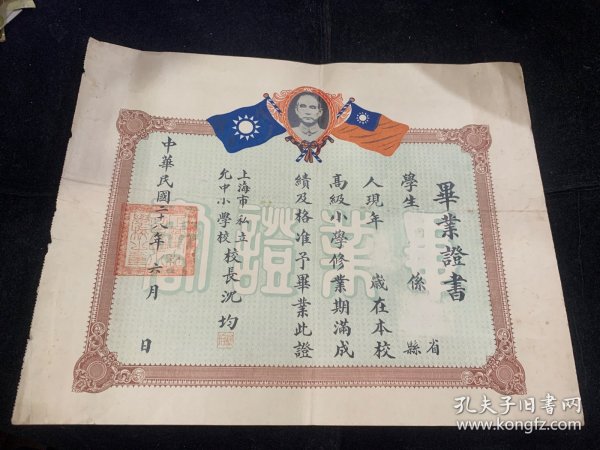 畢業證書
學生 係 省縣
人現年 歲在本校
高級小學修業期滿成
績及格准予畢業此證
上海市私立
允中小學校
校長沈均
中華民國二十八年六月 日
畢業證書
孔夫子旧书网
www.kongfz.com